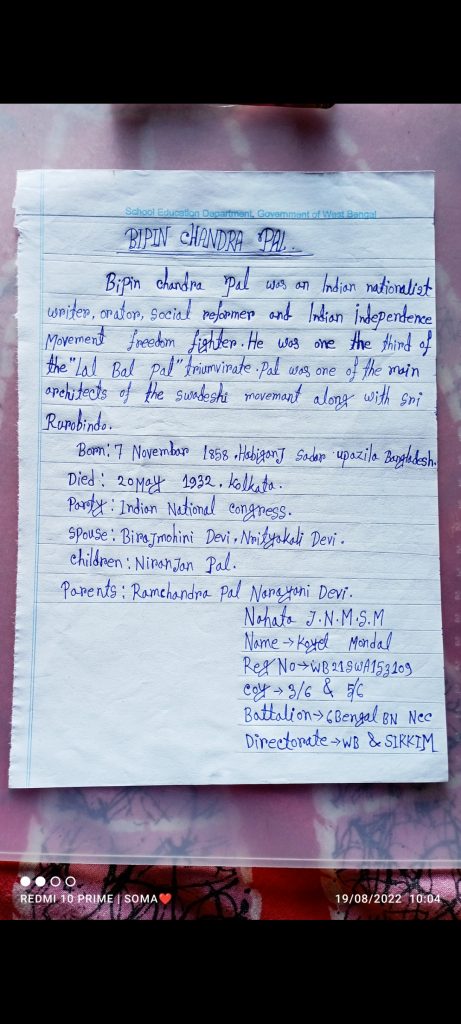 School Education Department, Government of West Bengal
BIPIN CHANDRA PAL.
Bipin chandra Pal was an Indian nationalist
writer, orator, social reformer and Indian independence
Movement freedom fighter. He was one the third of
the "Lal Bal Pal" triumvirate. Pal was one of the main
architects of the swadeshi movemant along with Sri
Rurobindo.
Born: 7 Novembar 1858, Habiganj Sadar upazila Bangladesh.
Died: 20 May 1932, Kolkata.
Party: Indian National congress.
Spouse: Birajmohini Devi, Nrityakali Devi.
children: Niranjan Pal.
Parents: Ramchandra Pal Narayani Devi.
Nahata J.N.M.S.M
Name → Koyel Mondal
Reg No → WB21SWA153109
coy → 3/6 & 5/6
Battalion → 6 Bengal BN Ncc
Directorate → WB & SIKKIM
REDMI 10 PRIME | SOMA❤️
19/08/2022 10:04